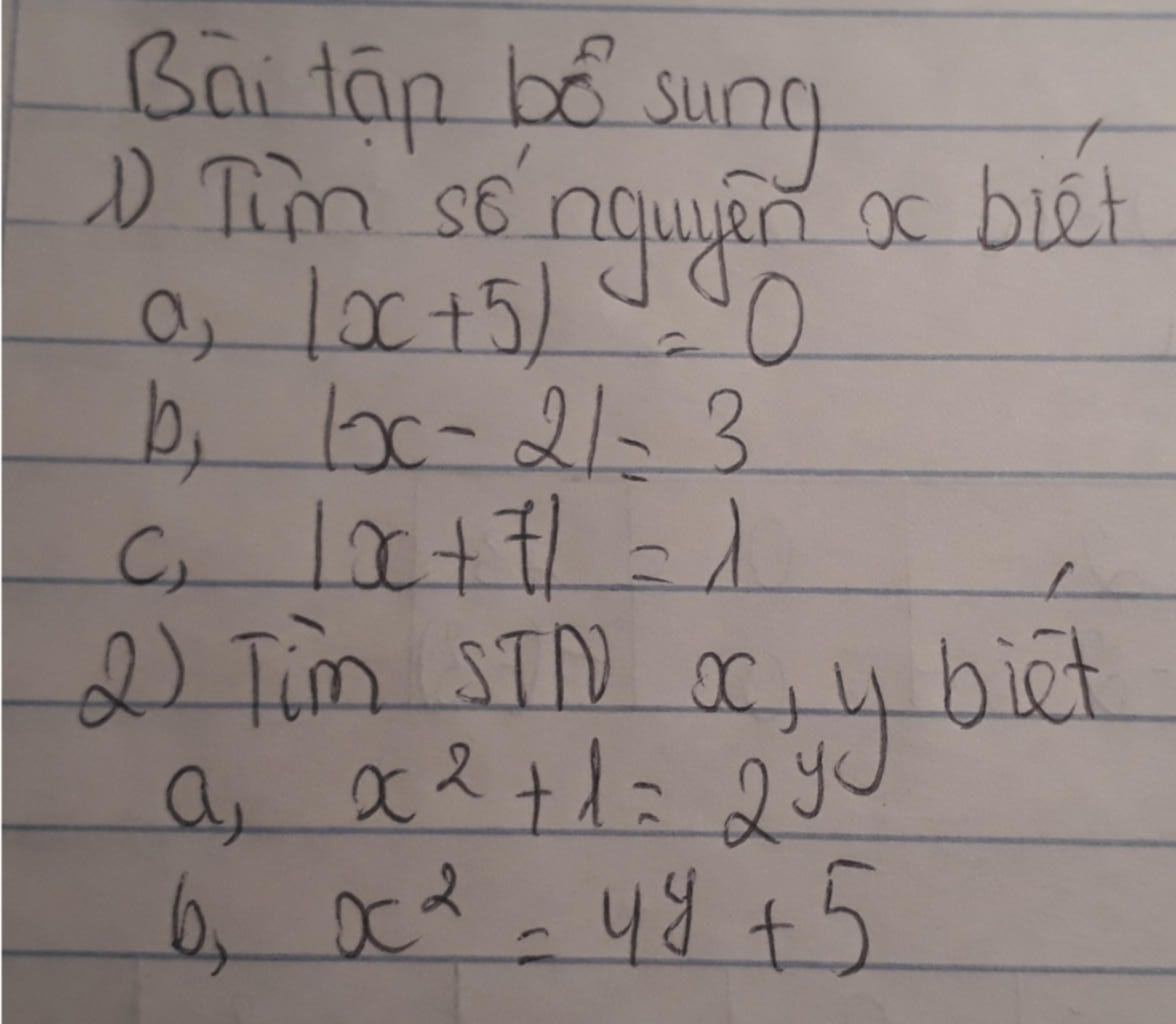 Bài tập bổ sung
1) Tìm số nguyên x biết
a, |x+5| = 0
b, |x - 2| = 3
c, |x + 7| = 1
2) Tìm STN x, y biết
a, x² + 1 = 2^y
b, x² = 4^y + 5